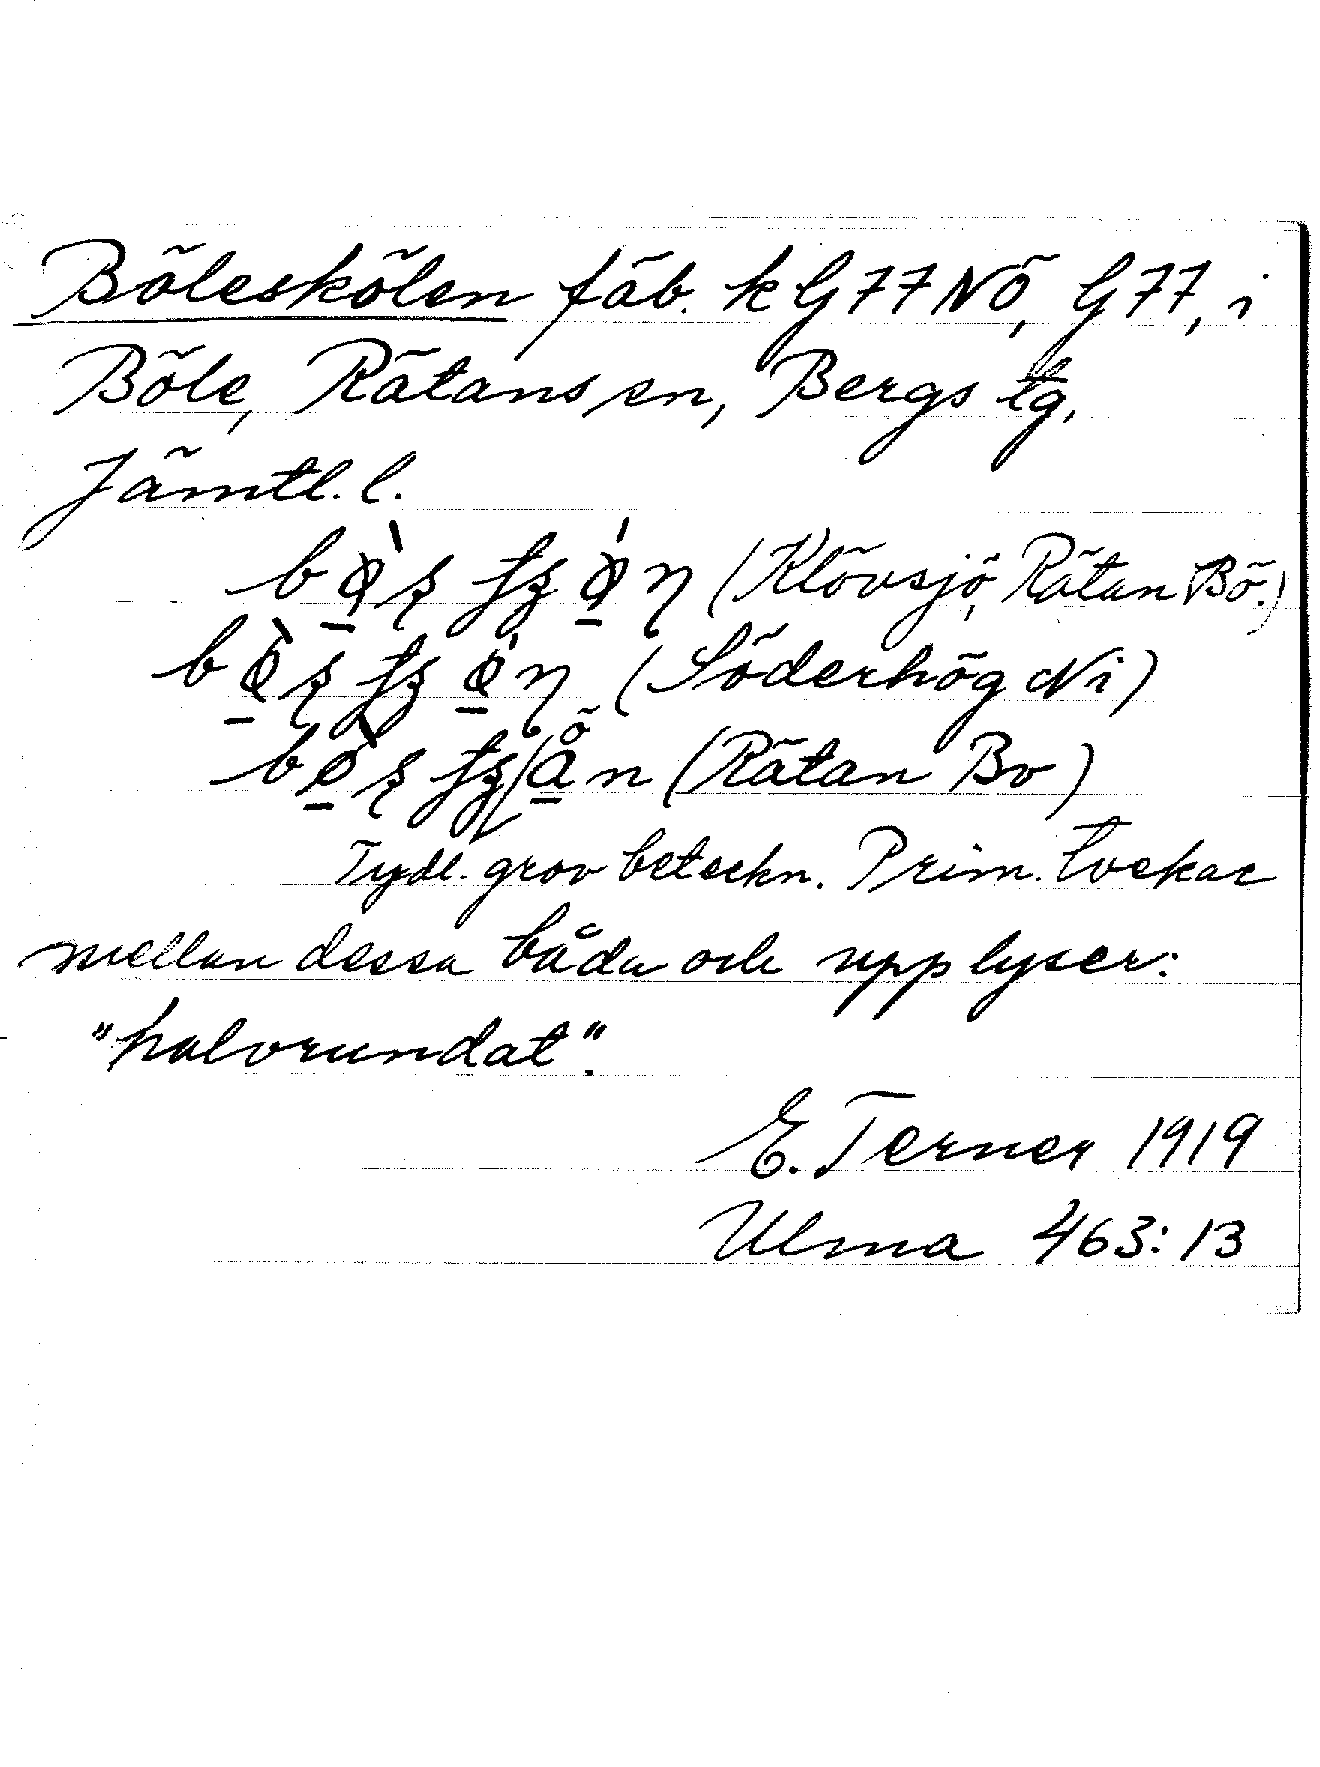 Böleskölen fäb. k G77NÖ, G77, i
Böle, Rätans sn, Bergs tg,
Jämtl. l.
(Klövsjö, Rätan Bö.)
(Söderhög Ni)
(Rätan Bo)
Tydl. grov beteckn. Prim. tvekar
mellan dessa båda och upplyser:
"halvrundat".
E. Terner 1919
Ulma 463:13